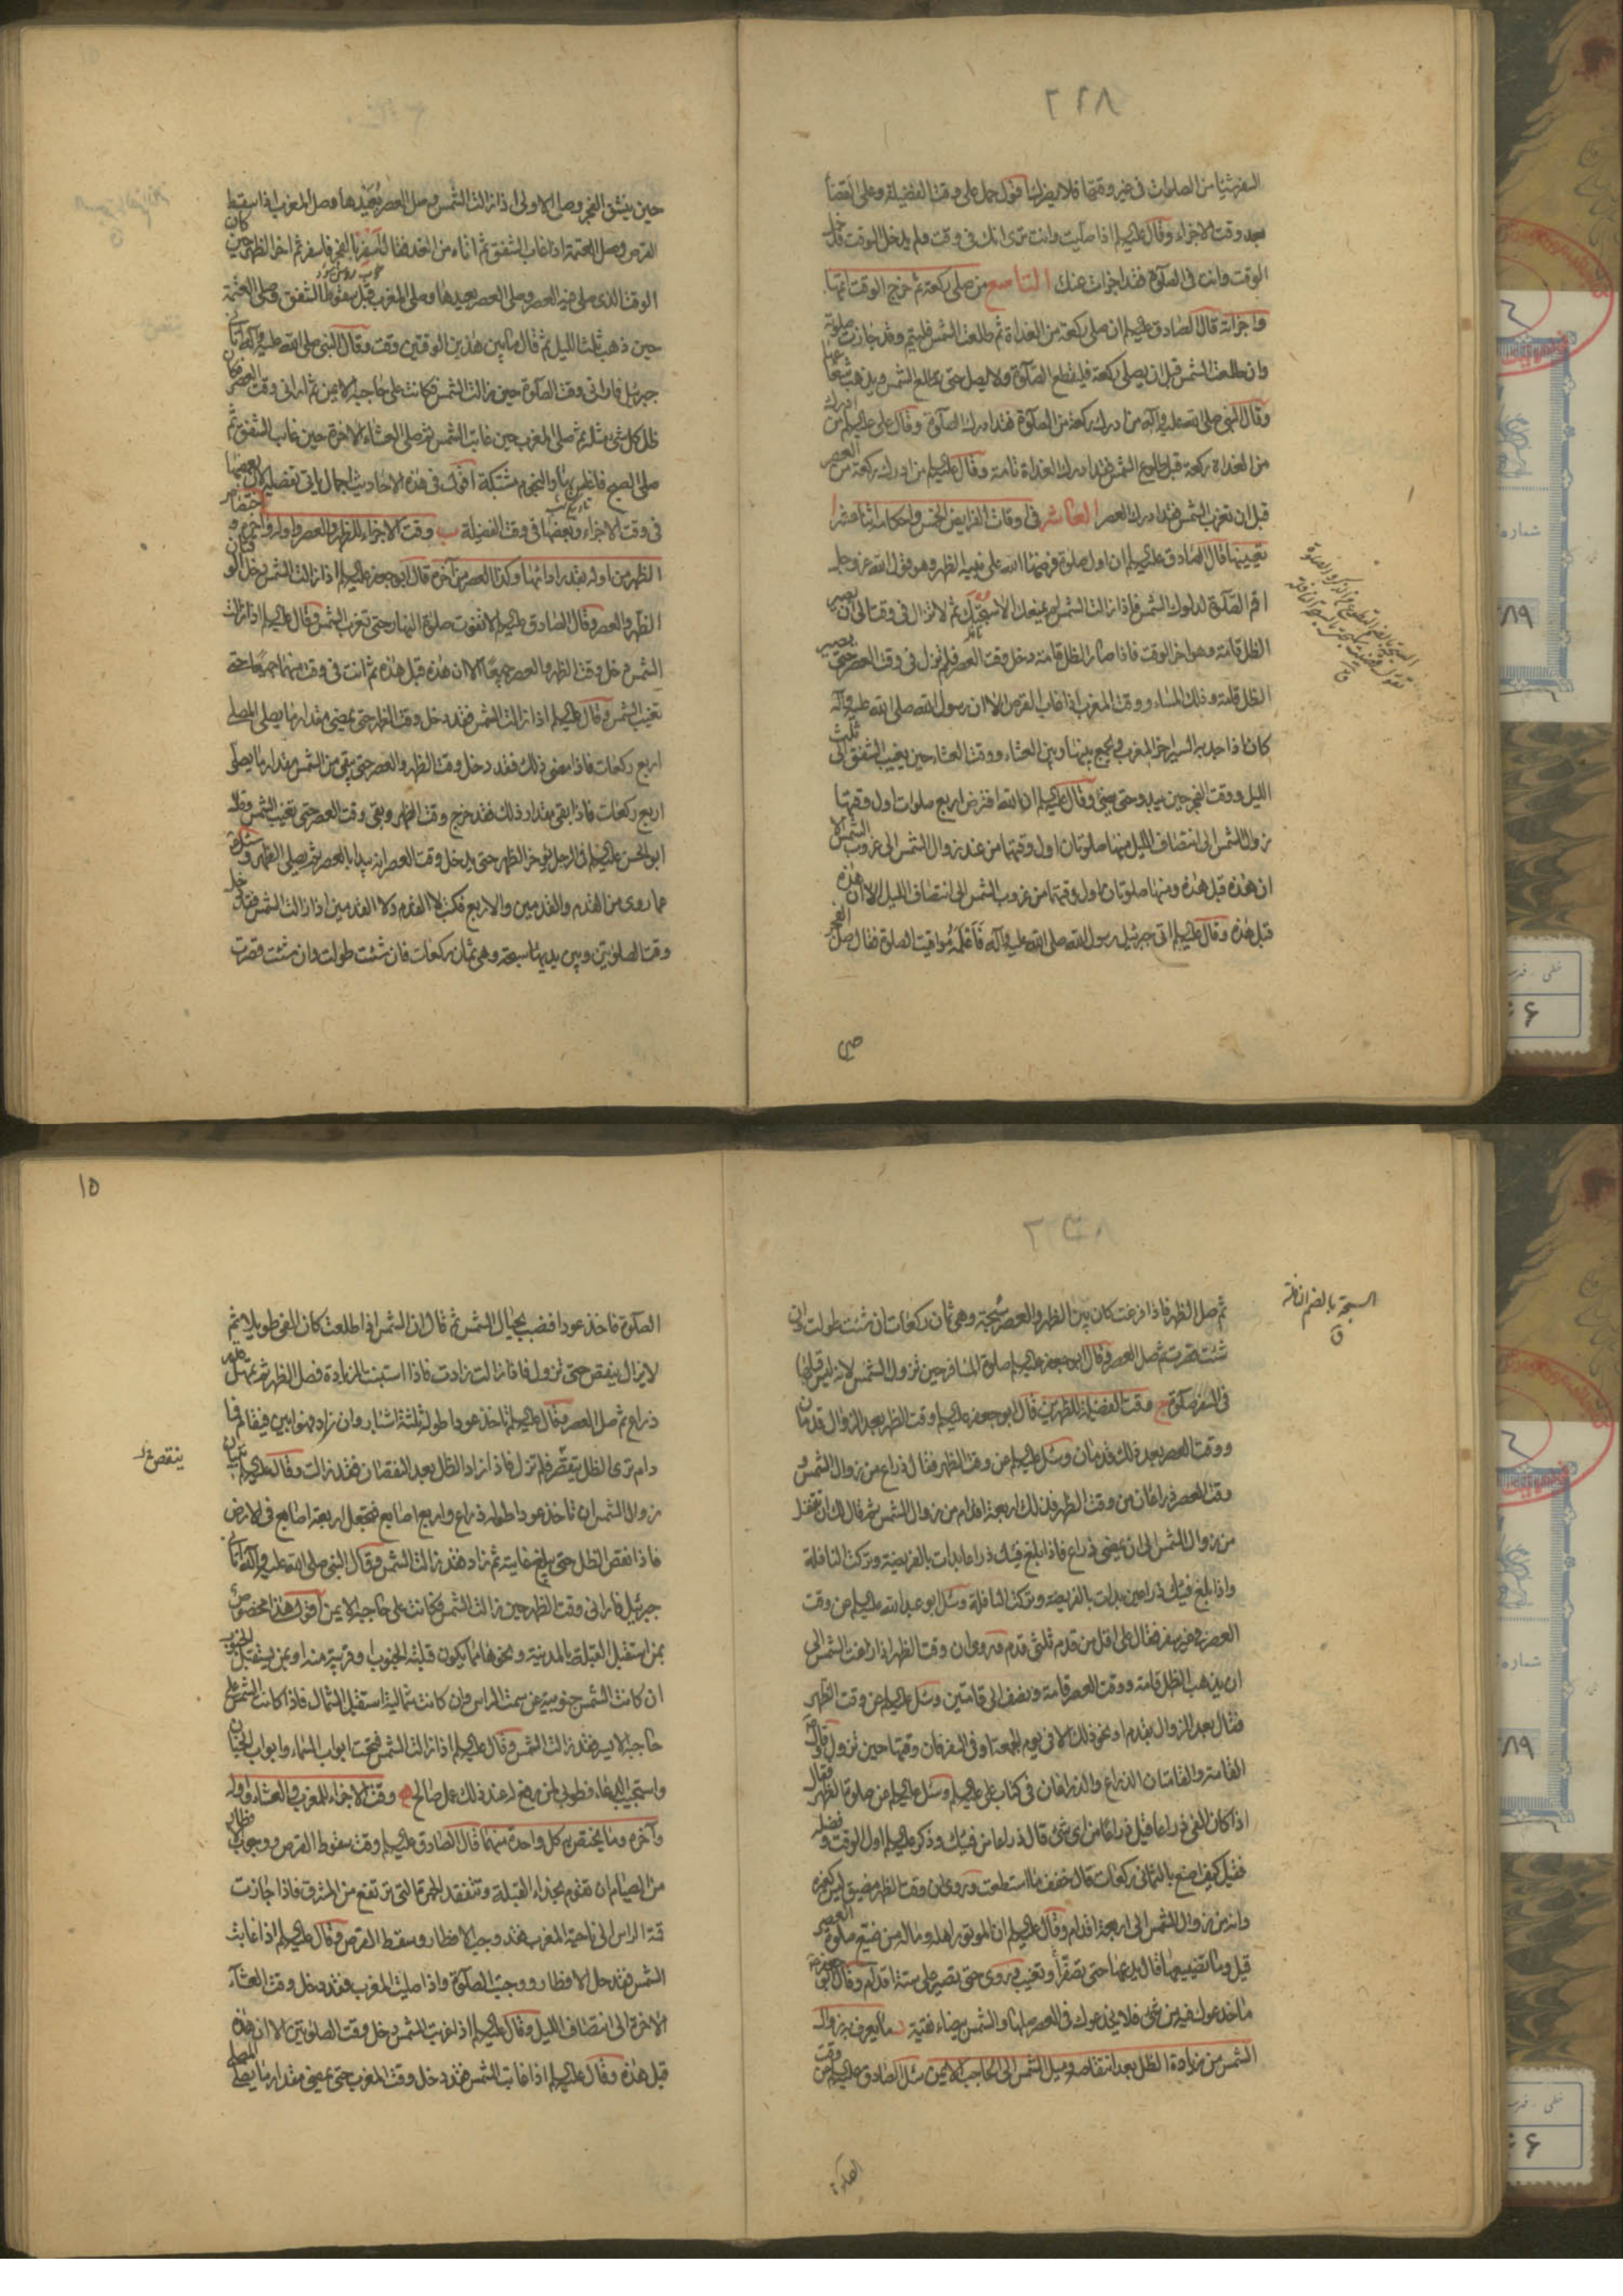 ٢٢٨
السفر شيئا من الصلوات فى غير وقتها فلا يضرك اقول حمل على وقت الفضيلة وعلى القضا
بعد وقت الاجزاء وقال عليه السلم اذا صليت وانت ترى انك فى وقت ولم يدخل الوقت فدخل
الوقت وانت فى الصلوة فقد اجزات عنك التاسع من صلى ركعة ثم خرج الوقت اتمها
واجزاته قال الصادق عليه السلم ان صلى ركعة من الغداة ثم طلعت الشمس فليتم وقد جازت صلوته
وان طلعت الشمس قبل ان يصلى ركعة فليقطع الصلوة ولا يصل حتى تطلع الشمس ويذهب شعاعها
وقال النبى صلى الله عليه وآله من ادرك ركعة من الصلوة فقد ادرك الصلوة وقال على عليه السلم من ادرك
من الغداة ركعة قبل طلوع الشمس فقد ادرك الغداة تامة وقال عليه السلم من ادرك ركعة من العصر
قبل ان تغرب الشمس فقد ادرك العصر العاشر فى اوقات الفرايض الخمس واحكامها اثنا عشر ا
تعيينها قال الصادق عليه السلم ان اول صلوة فرضها الله على نبيه الظهر وهو قول الله عز وجل
اقم الصلوة لدلوك الشمس فاذا زالت الشمس لم يمنعك الا سبحتك ثم لا تزال فى وقت الى ان يصير
الظل قامة وهو اخر الوقت فاذا صار الظل قامة دخل وقت العصر فلم تزل فى وقت العصر حتى يصير
الظل قامتين وذلك المساء ووقت المغرب اذا غاب القرص الا ان رسول الله صلى الله عليه وآله
كان اذا جد به السير اخر المغرب ويجمع بينها وبين العشاء ووقت العشاء حين يغيب الشفق الى ثلث
الليل ووقت الفجر حين يبدو حتى يضئ وقال عليه السلم ان الله افترض اربع صلوات اول وقتها
زوال الشمس الى انتصاف الليل منها صلوتان اول وقتهما من عند زوال الشمس الى غروب الشمس الا
ان هذه قبل هذه ومنها صلوتان اول وقتهما من غروب الشمس الى انتصاف الليل الا ان هذه
قبل هذه وقال عليه السلم اتى جبرئيل رسول الله صلى الله عليه وآله فاعلمه مواقيت الصلوة فقال صل الفجر
حين ينشق الفجر وصل الاولى اذا زالت الشمس وصل العصر بعيدها وصل المغرب اذا سقط
القرص وصل العتمة اذا غاب الشفق ثم اتاه من الغد فقال اسفر بالفجر فاسفر ثم اخر الظهر حين كان
الوقت الذى صلى فيه العصر وصلى العصر بعيدها وصلى المغرب قبل سقوط الشفق وصلى العتمة
حين ذهب ثلث الليل ثم قال ما بين هذين الوقتين وقت وقال النبى صلى الله عليه وآله اتانى
جبرئيل فارانى وقت الصلوة حين زالت الشمس فكانت على حاجبه الايمن ثم ارانى وقت العصر وكان
ظل كل شئ مثله ثم صلى المغرب حين غابت الشمس ثم صلى العشاء الاخرة حين غاب الشفق ثم
صلى الصبح فاغلس بها والنجوم مشتبكة اقول فى هذه الاحاديث اجمال ياتى تفصيله لان بعضها
فى وقت الاجزاء وبعضها فى وقت الفضيلة ب وقت الاجزاء للظهر والعصر واوله وآخره واختصاص
الظهر من اوله بقدر ادائها وكذا العصر من آخره قال ابو جعفر عليه السلم اذا زالت الشمس دخل الوقتان
الظهر والعصر وقال الصادق عليه السلم لا تفوت صلوة النهار حتى تغرب الشمس وقال عليه السلم اذا زالت
الشمس دخل وقت الظهر والعصر جميعا الا ان هذه قبل هذه ثم انت فى وقت منهما جميعا حتى
تغيب الشمس وقال عليه السلم اذا زالت الشمس فقد دخل وقت الظهر حتى يمضى مقدار ما يصلى المصلى
اربع ركعات فاذا مضى ذلك فقد دخل وقت الظهر والعصر حتى يبقى من الشمس مقدار ما يصلى
اربع ركعات فاذا بقى مقدار ذلك فقد خرج وقت الظهر وبقى وقت العصر حتى تغيب الشمس وقال
ابو الحسن عليه السلم فى الرجل يؤخر الظهر حتى يدخل وقت العصر انه يبدا بالعصر ثم يصلى الظهر وسئل
عما روى من القدم والقدمين والاربع فكتب لا القدم ولا القدمين اذا زالت الشمس فقد دخل
وقت الصلوتين وبين يديها سبحة وهى ثمان ركعات فان شئت طولت وان شئت قصرت
١٥
السبحة بالضم النافلة
ق
ثم صل الظهر فاذا فرغت كان بين الظهر والعصر سبحة وهى ثمان ركعات ان شئت طولت وان
شئت قصرت ثم صل العصر وقال ابو جعفر عليه السلم صلوة المسافر حين تزول الشمس لانه ليس قبلها
فى السفر صلوة ج وقت الفضيلة للظهرين قال ابو جعفر عليه السلم وقت الظهر بعد الزوال قدمان
ووقت العصر بعد ذلك قدمان وسئل عليه السلم عن وقت الظهر فقال ذراع من زوال الشمس و
وقت العصر ذراعان من وقت الظهر فذلك اربعة اقدام من زوال الشمس ثم قال لك ان تتنفل
من زوال الشمس الى ان يمضى ذراع فاذا بلغ فيئك ذراعا بدات بالفريضة وتركت النافلة
واذا بلغ فيئك ذراعين بدات بالفريضة وتركت النافلة وسئل ابو عبد الله عليه السلم عن وقت
العصر فى غير سفر فقال على اقل من قدم ثلثى قدم وروى ان وقت الظهر اذا زاغت الشمس الى
ان يذهب الظل قامة ووقت العصر قامة ونصف الى قامتين وسئل عليه السلم عن وقت الظهر
فقال بعد الزوال بقدم او نحو ذلك الا فى يوم الجمعة او فى السفر فان وقتها حين تزول وقال
القامة والقامتان الذراع والذراعان فى كتاب على عليه السلم وسئل عليه السلم عن صلوة الظهر فقال
اذا كان الفئ ذراعا قيل ذراعا من اى شئ قال ذراعا من فيئك وذكر عليه السلم اول الوقت وفضله
فقيل كيف اصنع بالثمانى ركعات قال خفف ما استطعت وروى ان وقت الظهر مضيق ليس كغيره
وانه من زوال الشمس الى اربعة اقدام وقال عليه السلم ان الموتور اهله وماله من ضيع صلوة العصر
قيل وما تضييعها قال يدعها حتى تصفر او تغيب وروى حتى تصير على ستة اقدام وقال ابو جعفر
ما خدعوك فيه من شئ فلا يخدعوك فى العصر صلها والشمس بيضاء نقية د ما يعرف به زوال
الشمس من زيادة الظل بعد انتقاصه وميل الشمس الى الحاجب الايمن سئل الصادق عليه السلم عن وقت
الصلوة
الصلوة فاخذ عودا فنصب بحيال الشمس ثم قال ان الشمس اذا طلعت كان الفئ طويلا ثم
لا يزال ينقص حتى تزول فاذا زالت زادت فاذا استبنت الزيادة فصل الظهر ثم تمهل قدر
ذراع ثم صل العصر وقال عليه السلم تاخذ عودا طوله ثلثة اشبار وان زاد فهو ابين فيقام فما
دام ترى الظل ينقص فلم تزل فاذا زاد الظل بعد النقصان فقد زالت وقال عليه السلم تبيان
زوال الشمس ان تاخذ عودا طوله ذراع واربع اصابع فتجعل اربعة اصابع فى الارض
فاذا نقص الظل حتى يبلغ غايته ثم زاد فقد زالت الشمس وقال النبى صلى الله عليه وآله اتانى
جبرئيل فارانى وقت الظهر حين زالت الشمس فكانت على حاجبه الايمن اقول هذا مخصوص
بمن استقبل القبلة بالمدينة ونحوها مما يكون قبلته الجنوب او قريبة منه او بمن يستقبل الجنوب
ان كانت الشمس جنوبية عن سمت الراس وان كانت شمالية استقبل الشمال فاذا كانت الشمس على
حاجبه الايسر فقد زالت الشمس وقال عليه السلم اذا زالت الشمس فتحت ابواب السماء وابواب الجنان
واستجيب الدعاء فطوبى لمن رفع له عند ذلك عمل صالح ه وقت الاجزاء للمغرب والعشاء واوله
وآخره وما يختص به كل واحدة منهما قال الصادق عليه السلم وقت سقوط القرص ووجوب الافطار
من الصيام ان تقوم بحذاء القبلة وتتفقد الحمرة التى ترتفع من المشرق فاذا جازت
قمة الراس الى ناحية المغرب فقد وجب الافطار وسقط القرص وقال عليه السلم اذا غابت
الشمس فقد حل الافطار ووجبت الصلوة واذا صليت المغرب فقد دخل وقت العشاء
الاخرة الى انتصاف الليل وقال عليه السلم اذا غربت الشمس دخل وقت الصلوتين الا ان هذه
قبل هذه وقال عليه السلم اذا غابت الشمس فقد دخل وقت المغرب حتى يمضى مقدار ما يصلى المصلى